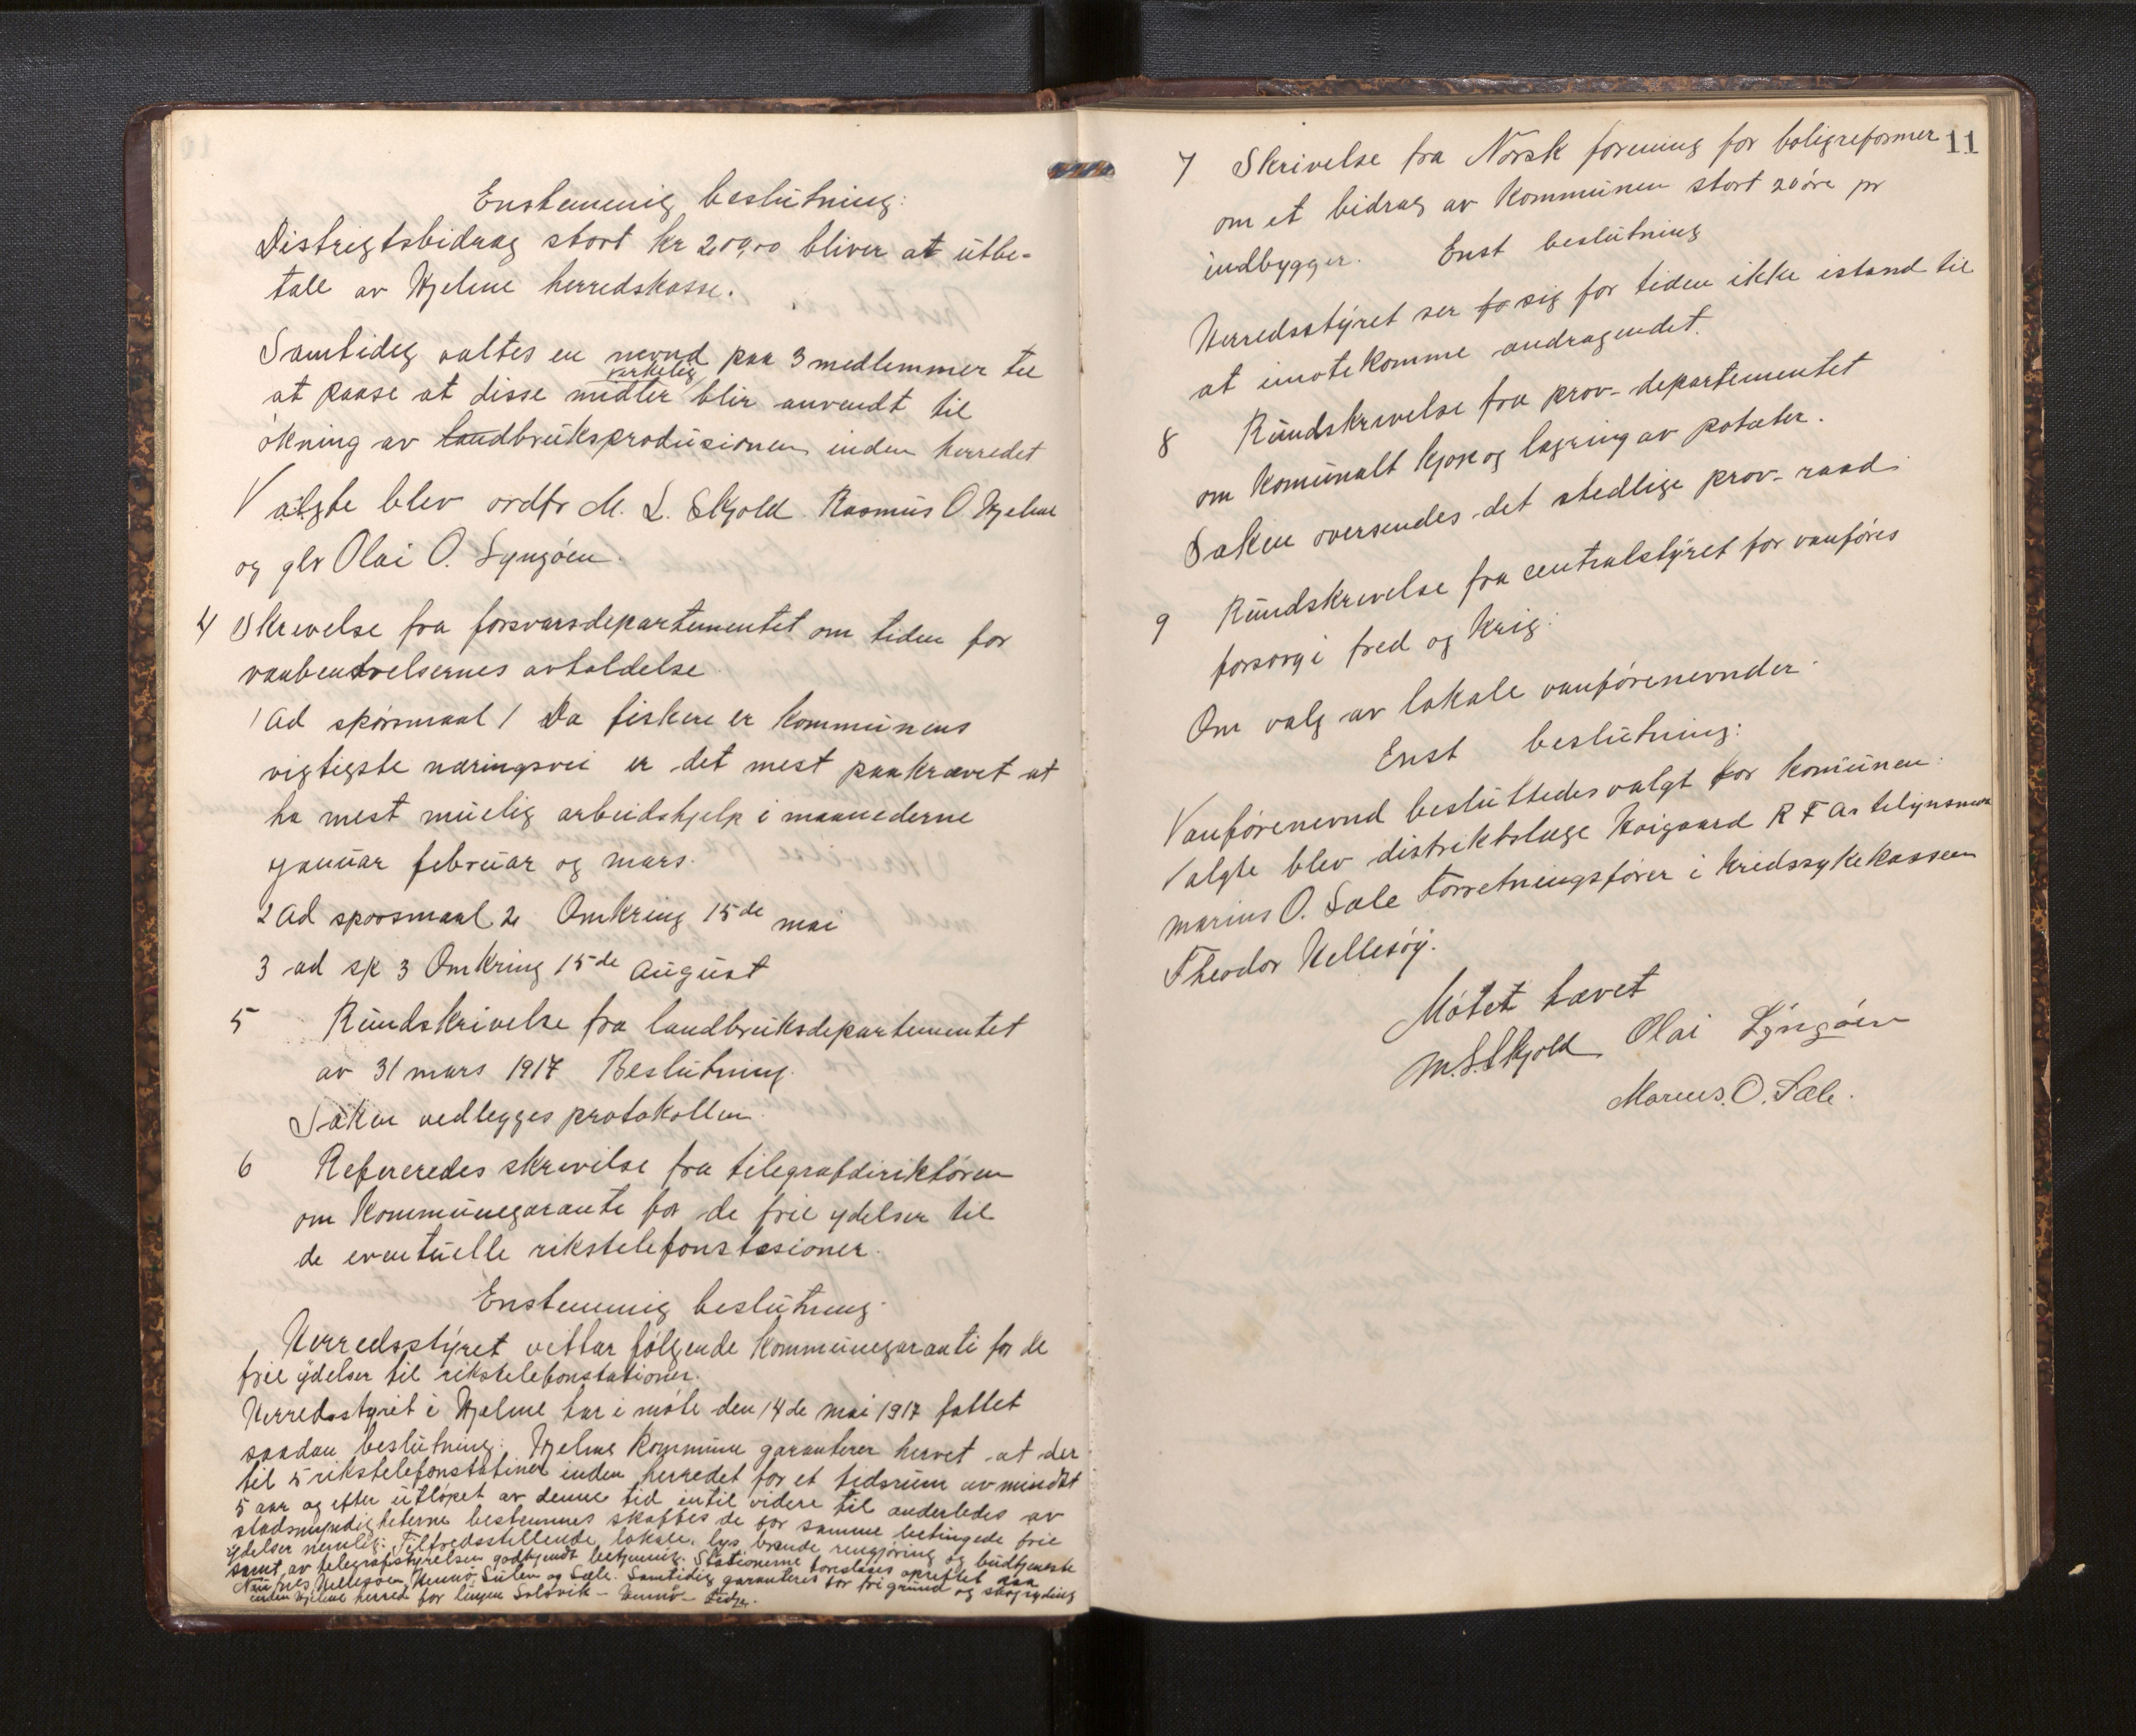 Enstemmig beslutning:
Distrigtsbidrag stort kr 200,00 bliver at utbe-
tale av Hjelme herredskasse.
Samtideg valtes en nevnd paa 3 medlemmer til
virkelig
at paase at disse midler blir anvendt til
økning av landbruksprodusionen inden herredet
Valgte blev ordfr M. L. Skjold. Rasmus O. Hjelme
og glr Olai O. Lyngøen.
4 Skrevelse fra forsvarsdepartementet om tiden for
vaabenøvelsernes avholdelse
1 Ad spørsmaal 1 Da fiskere er kommunens
vigtigste næringsvei er det mest paakrævet at
ha mest muelig arbeidshjelp i maanederne
januar februar og mars.
2 Ad spørsmaal 2 Omkring 15de mai
3 ad sp 3 Omkring 15de August
5 Rundskrivelse fra landbruksdepartementet
av 31 mars 1917 Beslutning.
Saken vedlegges protokollen.
6 Refereredes skrevilse fra telegrafdirektøren
om Kommunegarante for de frie ydelser til
de eventuelle rikstelefonstasioner.
Enstemmig beslutning.
Herredsstyret vettar følgende Kommunegaranti for de
frie ydelser til rikstelefonstationer.
Herredsstyret i Hjelme har i møte den 14de mai 1917 fattet
saadan beslutning: Hjelme Kommune garanterer hervet at der
til 5 rikstelefonstatiner inden herredet for et tidsrum av mindst
5 aar og efter utløpet av denne tid intil videre til anderledes av
stadsmyndigheterne bestemmes skaffes de for samme betingede frie
ydelser nemlig: Tilfredsstillende lokale, lys brænde rengjøring og budtjeneste
samt av telegrafstyrelsen godkjendt betjening. Stationerne foreslaaes oprettet paa
Hellesøen, Hernø, Sulen og Sæle. Samtidig garanteres for fri grund og skogryding
inden Hjelme herred for linjen Solsvik - Hernø - Fedje.
11
7 Skrivelse fra Norsk forening for boligreformer
om et bidrag av Kommunen stort 20 øre pr
indbygger. Enst beslutning
Herredsstyret ser fo sig for tiden ikke istand til
at imøtekomme andragendet.
8 Rundskrevelse fra prov-departementet
om Komunalt kjøp og lagring av poteter.
Saken oversendes det stedlige prov-raad.
9 Rundskrevelse fra centralstyret for vanføres
forsorg i fred og Krig.
Om valg av lokale vanførenevnder.
Enst beslutning:
Vanførenevnd besluttedes valgt for Komunen.
Valgte blev distriktslæge Hoigaard R F A
marius O. Sæle Forretningsfører i kredssykekassen
Theodor Hellesøy.
Møtet hævet
M. L. Skjold Olai Lyngøen
Marius. O. Sæle.